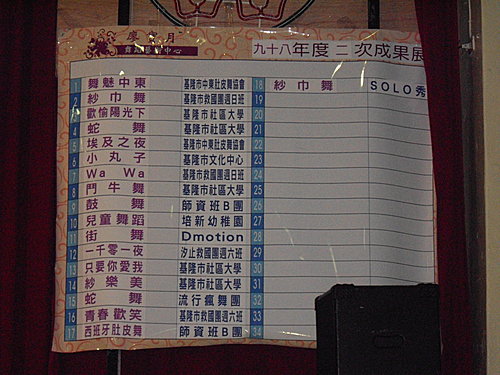 慶 月
舞蹈學習中心
九十八年度二次成果展
1 舞魅中東 基隆市中東肚皮舞協會
2 紗巾舞 基隆市救國團週日班
3 歡愉陽光下 基隆市社區大學
4 蛇舞 基隆市社區大學
5 埃及之夜 基隆市中東肚皮舞協會
6 小丸子 基隆市文化中心
7 Wa Wa 基隆市救國團週日班
8 鬥牛舞 基隆市社區大學
9 鼓舞 師資班B團
10 兒童舞蹈 培新幼稚園
11 街舞 Dmotion
12 一千零一夜 汐止救國團週六班
13 只要你愛我 基隆市社區大學
14 紗樂美 基隆市社區大學
15 蛇舞 流行瘋舞團
16 青春歡笑 基隆市救國團週六班
17 西班牙肚皮舞 師資班B團
18 紗巾舞 SOLO秀
19
20
21
22
23
24
25
26
27
28
29
30
31
32
33
34